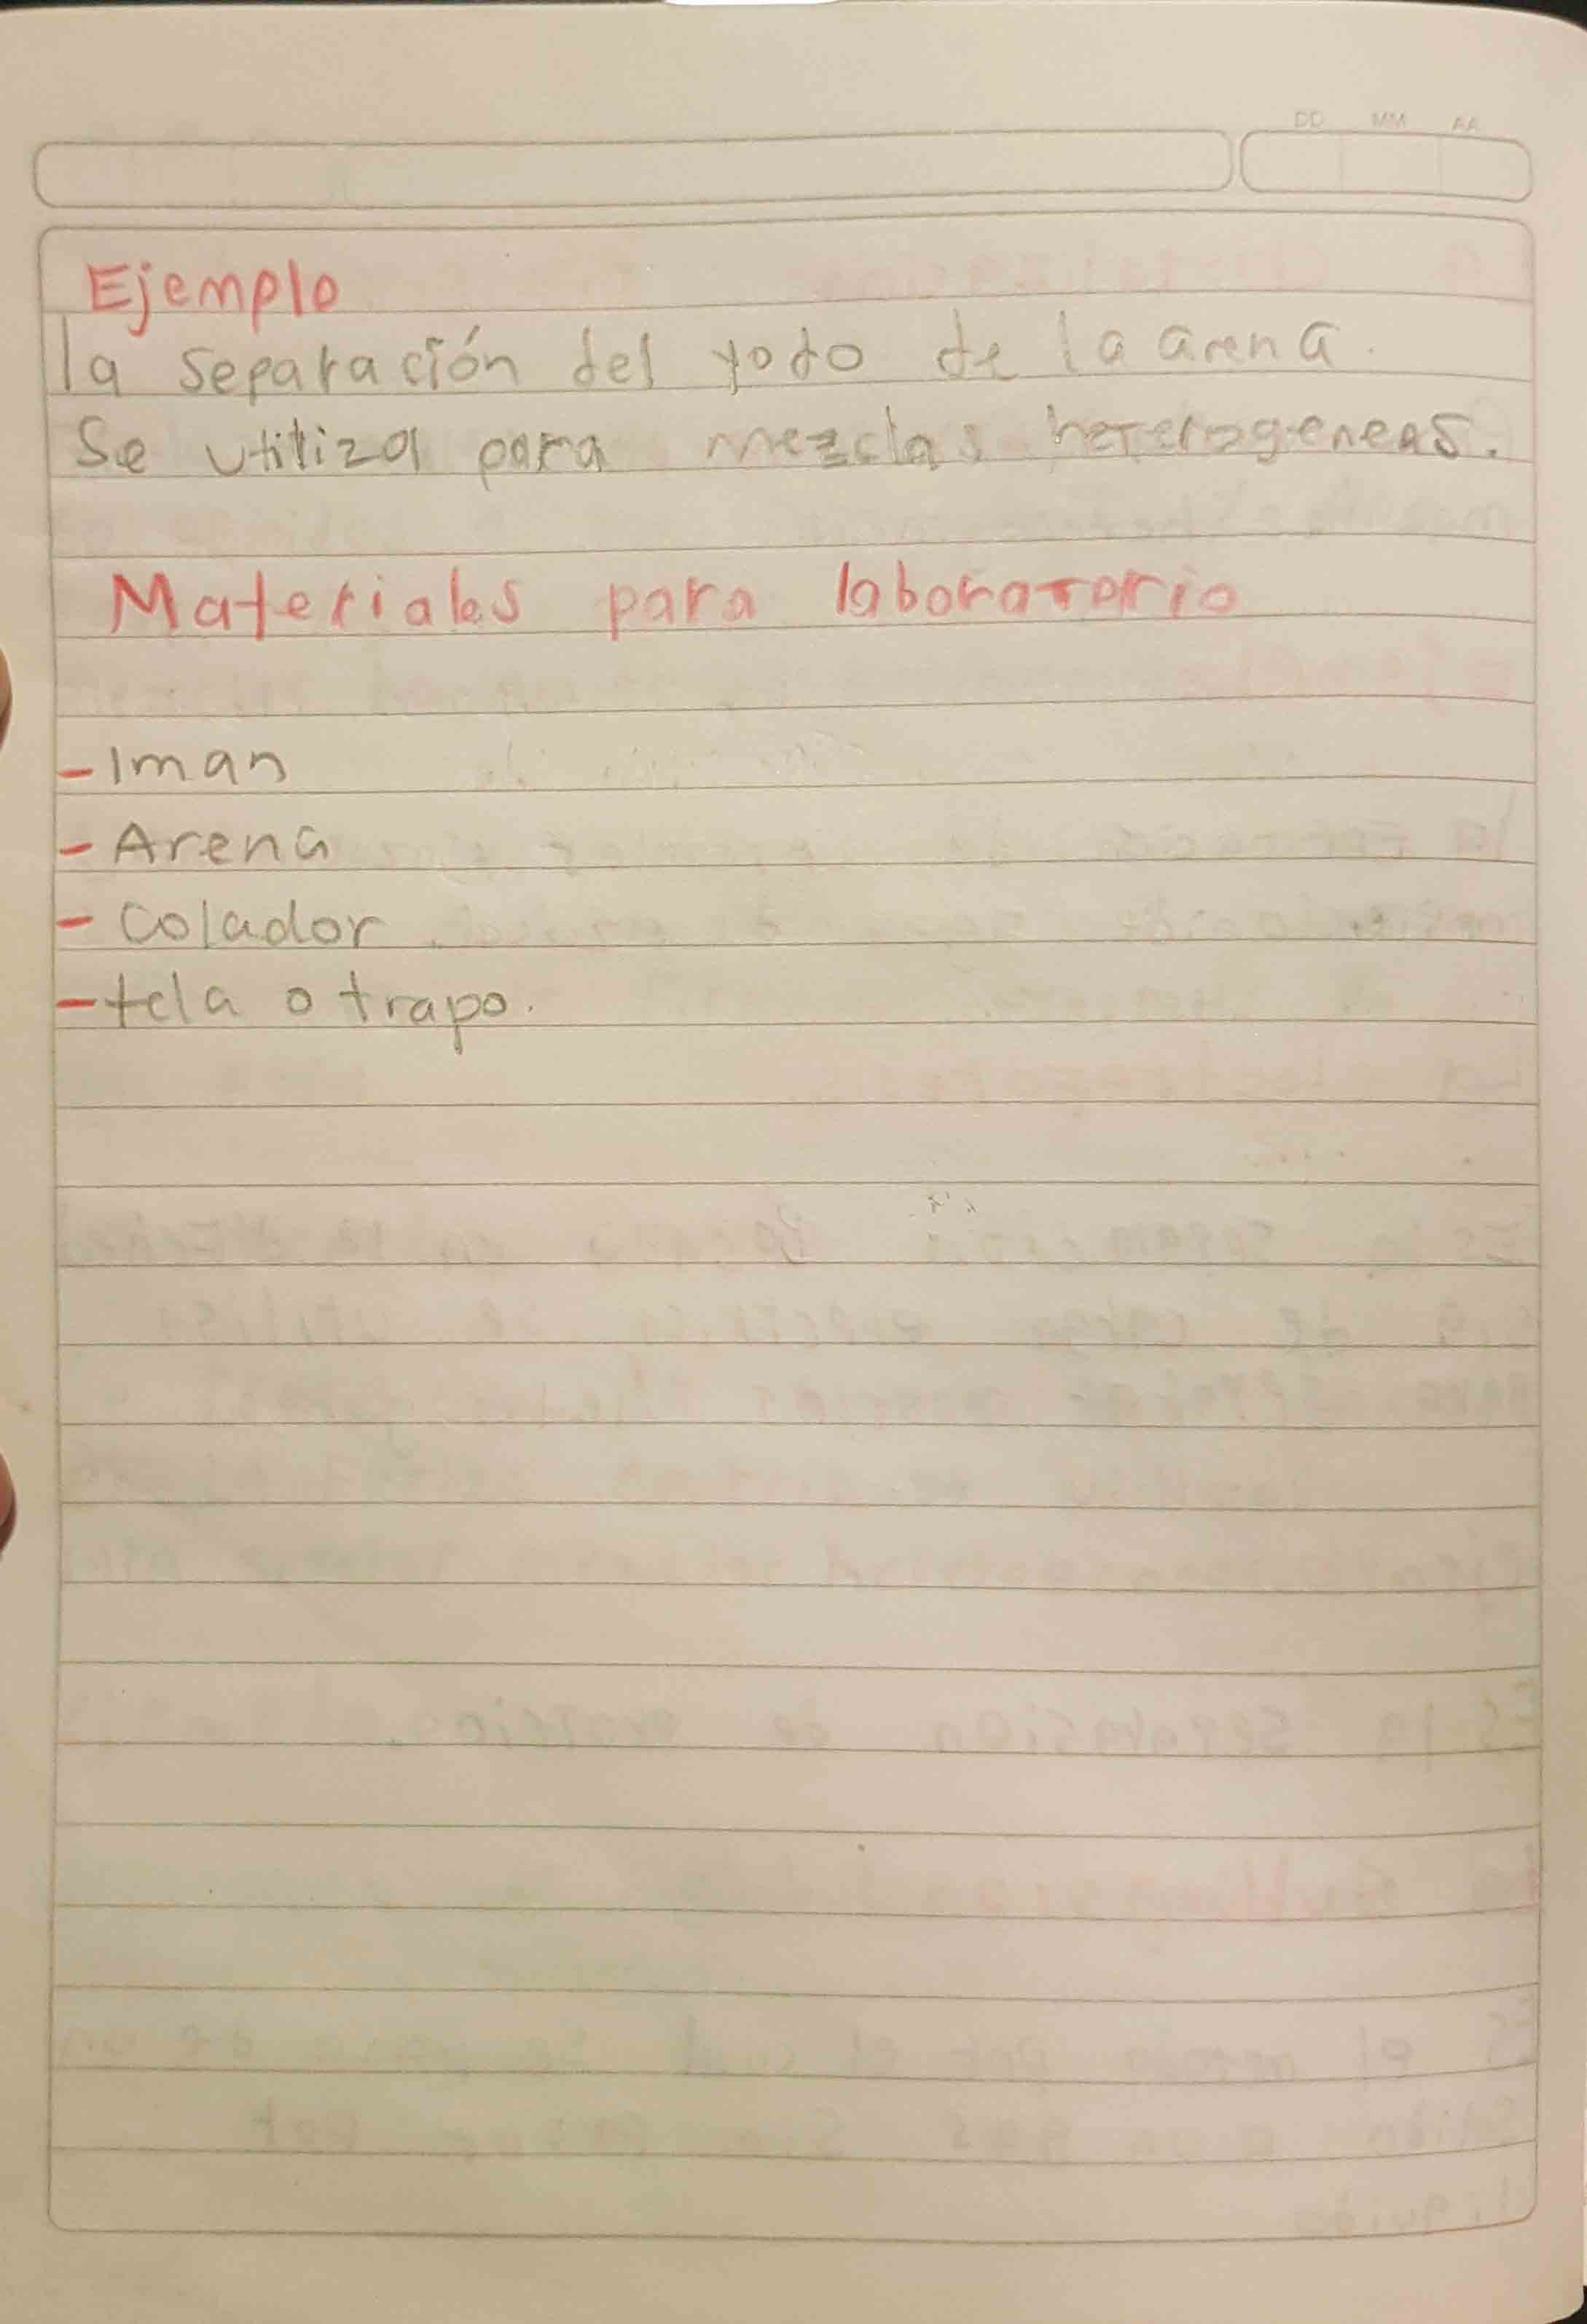 DD MM AA
Ejemplo
la separación del yodo de la arena.
Se utiliza para mezclas heterogeneas.
Materiales para laboratorio
- Iman
- Arena
- Colador
- tela o trapo.